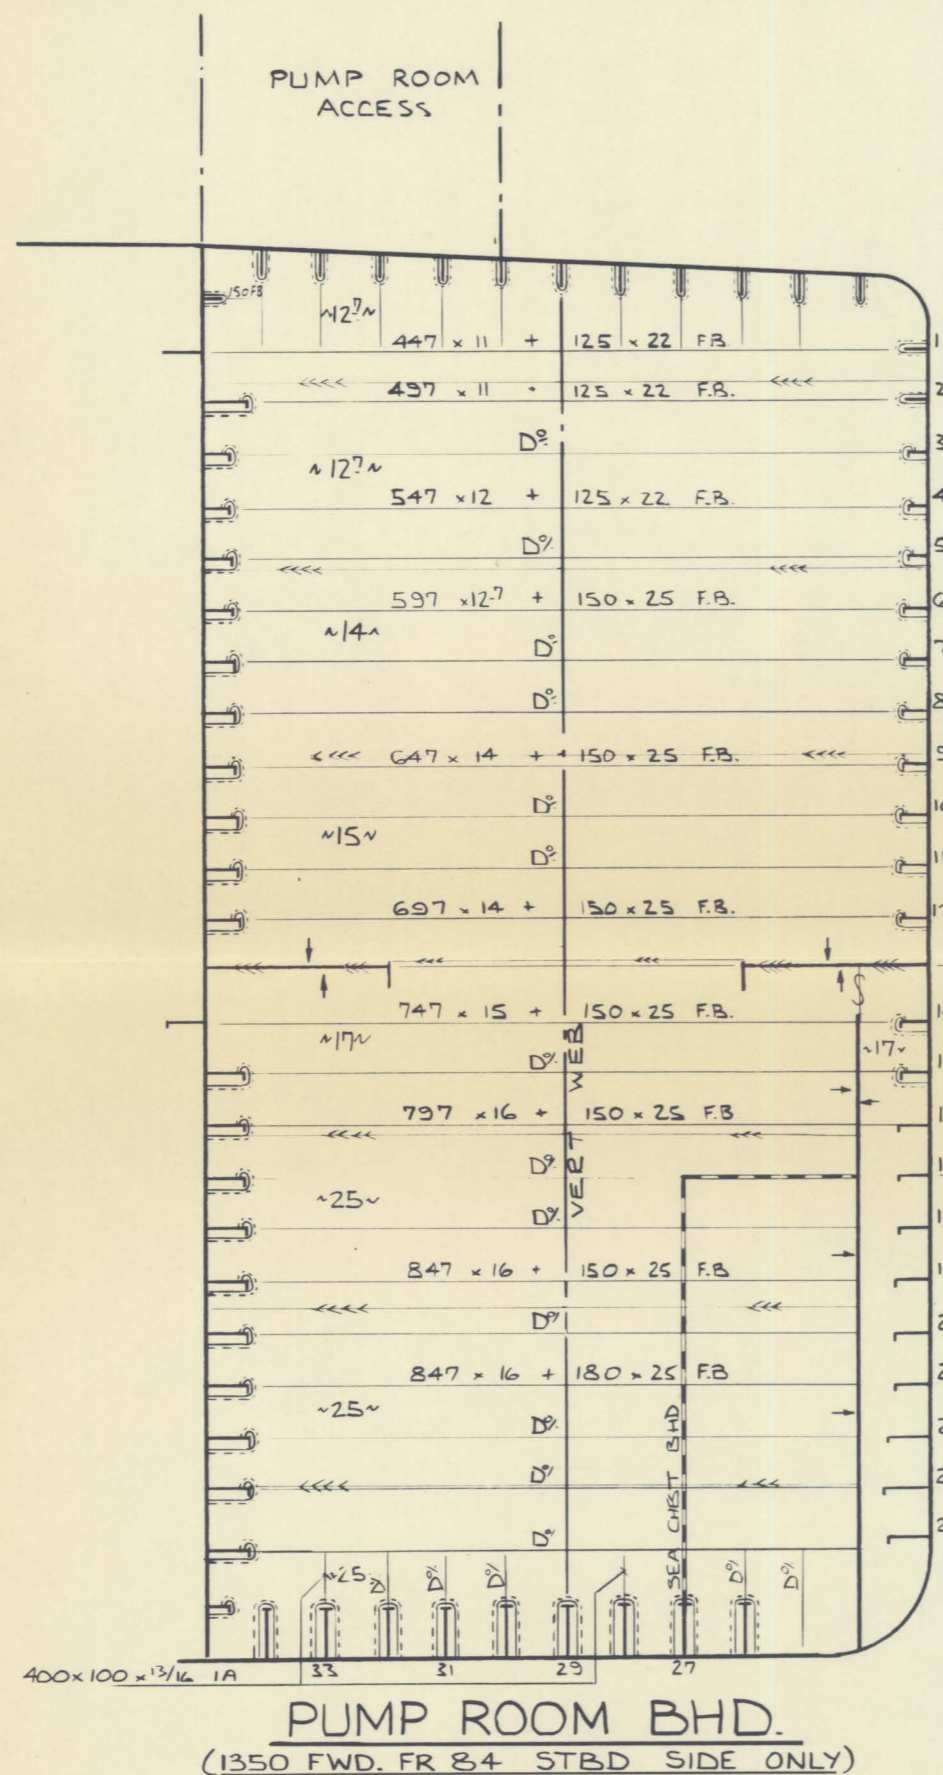 PUMP ROOM
ACCESS
150FB
~12⁷~
447 x 11 + 125 x 22 F.B.
1
497 x 11 · 125 x 22 F.B.
2
Dº
3
~12⁷~
547 x 12 + 125 x 22 F.B.
4
Dº
5
597 x 12·7 + 150 x 25 F.B.
6
~14~
Dº
7
Dº
8
647 x 14 + 150 x 25 F.B.
9
Dº
~15~
Dº
697 x 14 + 150 x 25 F.B.
747 x 15 + 150 x 25 F.B.
~17~
~17~
Dº
VERT WEB
797 x 16 + 150 x 25 F.B
Dº
~25~
Dº
847 x 16 + 150 x 25 F.B
Dº
847 x 16 + 180 x 25 F.B
~25~
Dº
SEA CHEST BHD
Dº
Dº
~25~
Dº Dº Dº Dº Dº
400 x 100 x 13/16 IA 33 31 29 27
PUMP ROOM BHD.
(1350 FWD. FR 84 STBD SIDE ONLY)